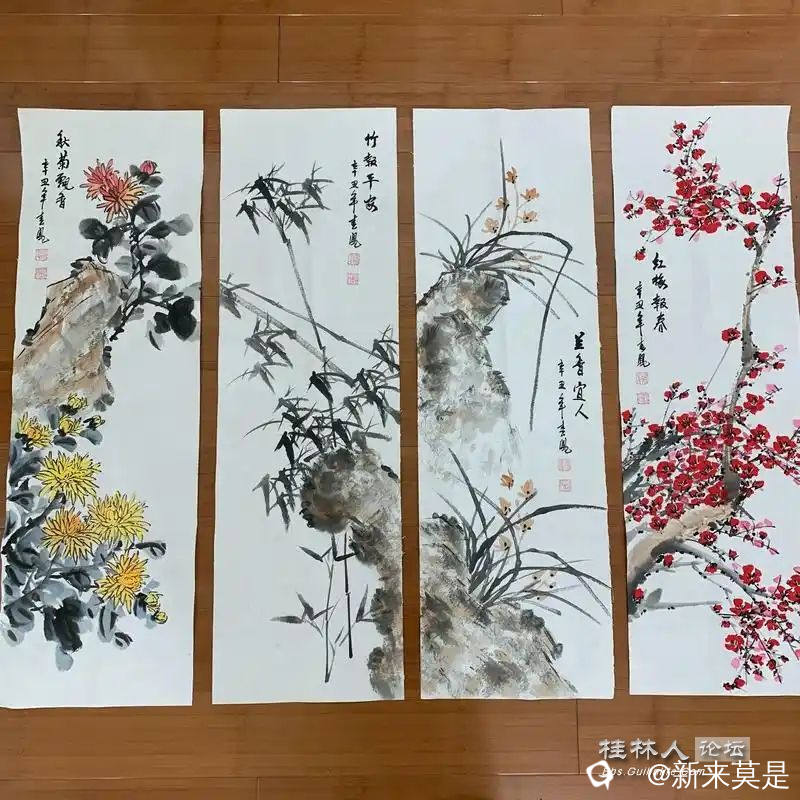 秋菊飘香
辛丑年春凤
竹报平安
辛丑年春凤
兰香宜人
辛丑年春凤
红梅报春
辛丑年春凤
桂林人论坛
bbs.Guilinlife.com
@新来莫是